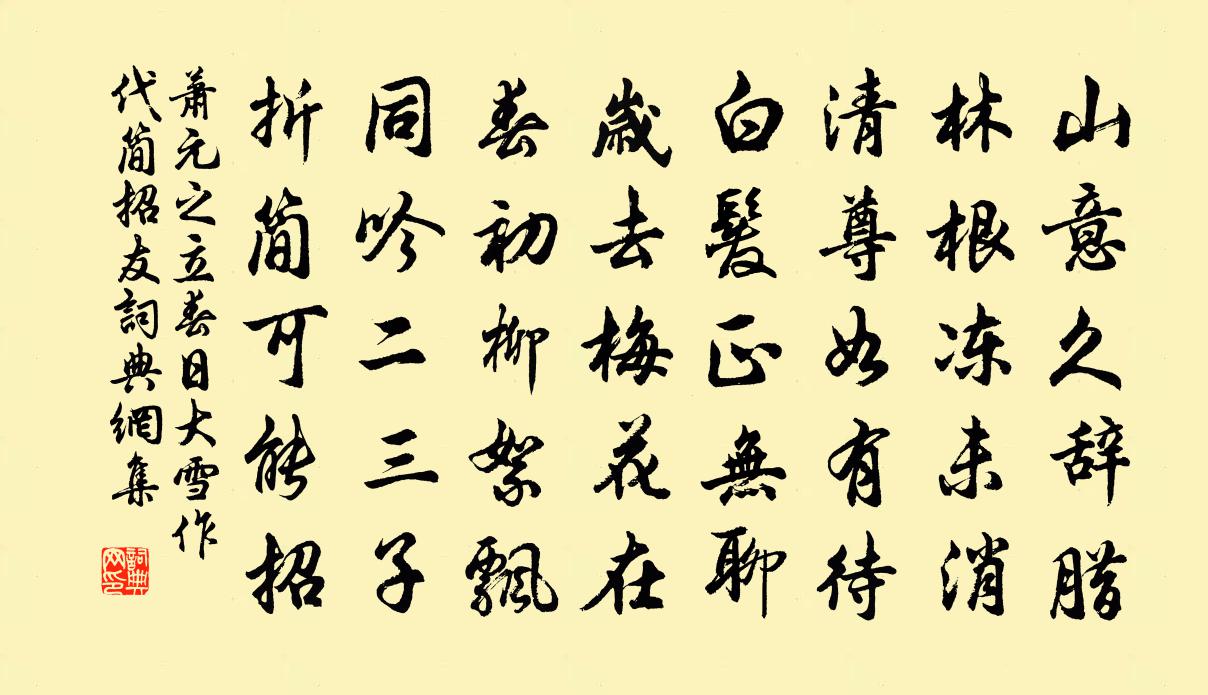 山意久辞腊
林根冻未消
清尊如有待
白髮正無聊
歲去梅花在
春初柳絮飄
同吟二三子
折简可能招
蕭元之立春日大雪作
代简招友詞典網集
詞典
网印